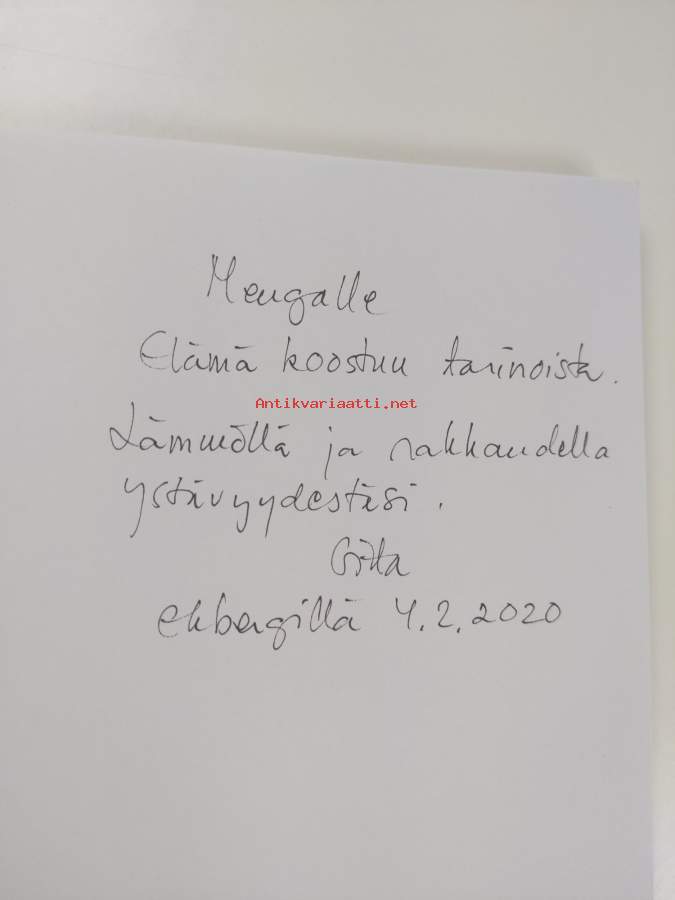 Elämä koostuu tarinoista.
Antikvariaatti.net
Lämmöllä ja rakkaudella
ystävyydestäsi.
Gitta
ekbergillä 4.2.2020